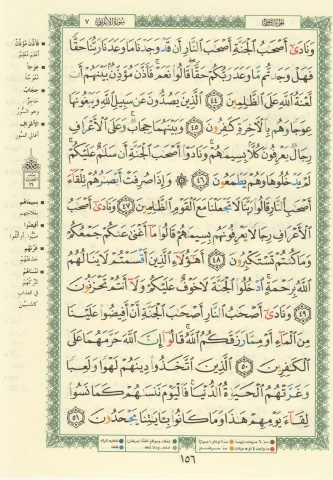 الجزء الثامن
سورة الأعراف ٧
وَنَادَىٰٓ أَصْحَٰبُ ٱلْجَنَّةِ أَصْحَٰبَ ٱلنَّارِ أَن قَدْ وَجَدْنَا مَا وَعَدَنَا رَبُّنَا حَقًّا
فَهَلْ وَجَدتُّم مَّا وَعَدَ رَبُّكُمْ حَقًّا قَالُوا۟ نَعَمْ فَأَذَّنَ مُؤَذِّنٌۢ بَيْنَهُمْ أَن
لَّعْنَةُ ٱللَّهِ عَلَى ٱلظَّٰلِمِينَ ٤٤ ٱلَّذِينَ يَصُدُّونَ عَن سَبِيلِ ٱللَّهِ وَيَبْغُونَهَا
عِوَجًا وَهُم بِٱلْءَاخِرَةِ كَٰفِرُونَ ٤٥ وَبَيْنَهُمَا حِجَابٌ وَعَلَى ٱلْأَعْرَافِ
رِجَالٌ يَعْرِفُونَ كُلًّۢا بِسِيمَىٰهُمْ وَنَادَوْا۟ أَصْحَٰبَ ٱلْجَنَّةِ أَن سَلَٰمٌ عَلَيْكُمْ
لَمْ يَدْخُلُوهَا وَهُمْ يَطْمَعُونَ ٤٦ ۞ وَإِذَا صُرِفَتْ أَبْصَٰرُهُمْ تِلْقَآءَ
أَصْحَٰبِ ٱلنَّارِ قَالُوا۟ رَبَّنَا لَا تَجْعَلْنَا مَعَ ٱلْقَوْمِ ٱلظَّٰلِمِينَ ٤٧ وَنَادَىٰٓ أَصْحَٰبُ
ٱلْأَعْرَافِ رِجَالًا يَعْرِفُونَهُم بِسِيمَىٰهُمْ قَالُوا۟ مَآ أَغْنَىٰ عَنكُمْ جَمْعُكُمْ
وَمَا كُنتُمْ تَسْتَكْبِرُونَ ٤٨ أَهَٰٓؤُلَآءِ ٱلَّذِينَ أَقْسَمْتُمْ لَا يَنَالُهُمُ
ٱللَّهُ بِرَحْمَةٍ ٱدْخُلُوا۟ ٱلْجَنَّةَ لَا خَوْفٌ عَلَيْكُمْ وَلَآ أَنتُمْ تَحْزَنُونَ
٤٩ وَنَادَىٰٓ أَصْحَٰبُ ٱلنَّارِ أَصْحَٰبَ ٱلْجَنَّةِ أَنْ أَفِيضُوا۟ عَلَيْنَا
مِنَ ٱلْمَآءِ أَوْ مِمَّا رَزَقَكُمُ ٱللَّهُ قَالُوٓا۟ إِنَّ ٱللَّهَ حَرَّمَهُمَا عَلَى
ٱلْكَٰفِرِينَ ٥٠ ٱلَّذِينَ ٱتَّخَذُوا۟ دِينَهُمْ لَهْوًا وَلَعِبًا
وَغَرَّتْهُمُ ٱلْحَيَوٰةُ ٱلدُّنْيَا فَٱلْيَوْمَ نَنسَىٰهُمْ كَمَا نَسُوا۟
لِقَآءَ يَوْمِهِمْ هَٰذَا وَمَا كَانُوا۟ بِـَٔايَٰتِنَا يَجْحَدُونَ ٥١
١٥٦